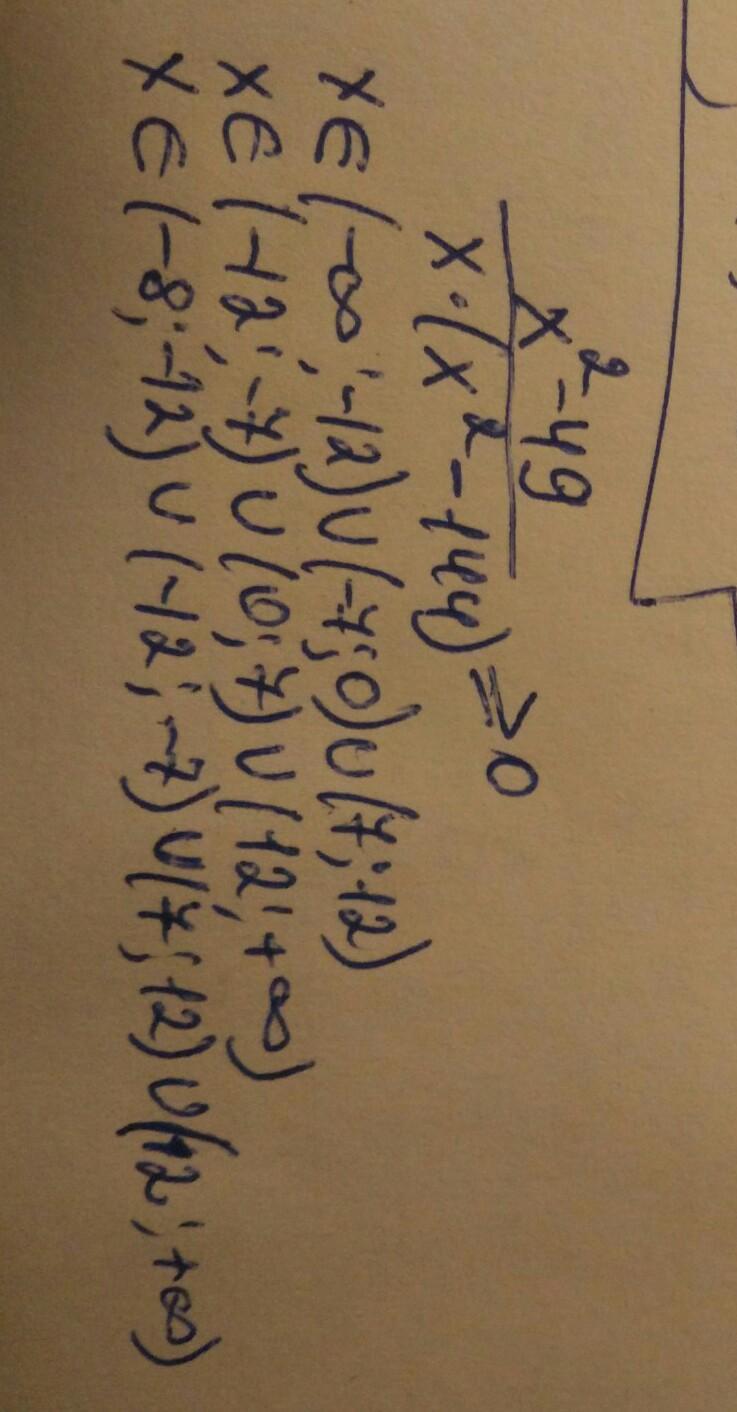 x² - 49
x · (x² - 144) ⩾ 0
x ∈ (-∞; -12) ∪ (-7; 0) ∪ (7; 12)
x ∈ (-12; -7) ∪ (0; 7) ∪ (12; +∞)
x ∈ (-8; -12) ∪ (-12; -7) ∪ (7; 12) ∪ (12; +∞)